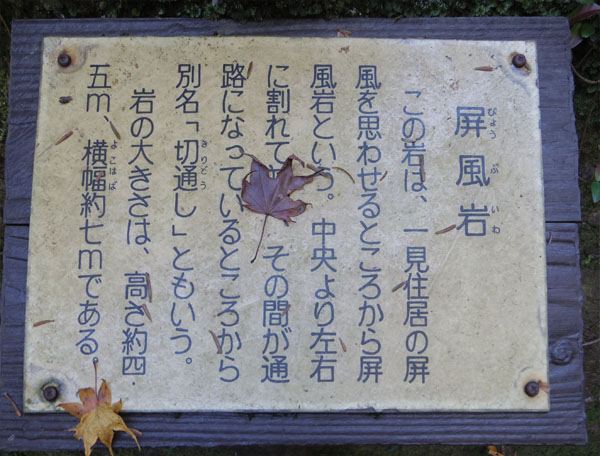 屏風岩
びょうぶいわ
この岩は、一見住居の屏
風を思わせるところから屏
風岩という。中央より左右
に割れて その間が通
路になっているところから
別名「切通し」ともいう。
きりどう
岩の大きさは、高さ約四
五m、横幅約七mである。
よこはば